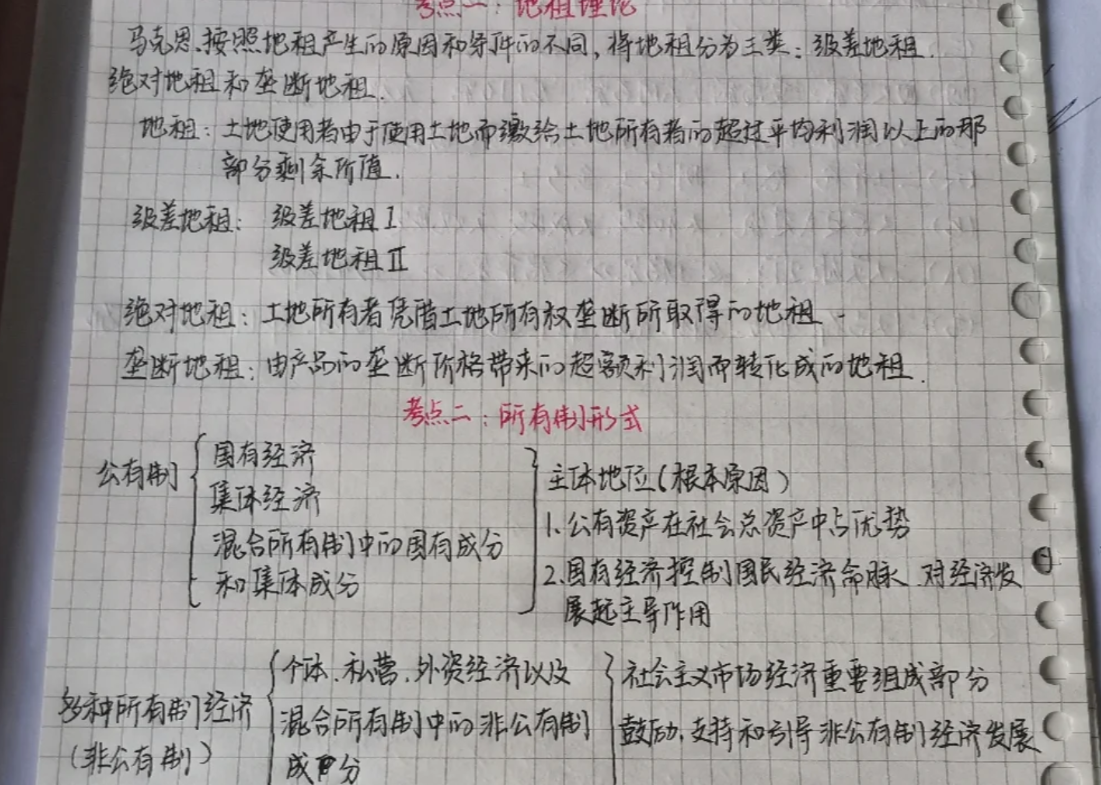 考点一：地租理论
马克思按照地租产生的原因和条件的不同，将地租分为三类：级差地租.
绝对地租和垄断地租.
地租：土地使用者由于使用土地而缴给土地所有者的超过平均利润以上的那
部分剩余价值.
级差地租： 级差地租Ⅰ
级差地租Ⅱ
绝对地租：土地所有者凭借土地所有权垄断所取得的地租.
垄断地租：由产品的垄断价格带来的超额利润而转化成的地租.
考点二：所有制形式
公有制
国有经济
集体经济
混合所有制中的国有成分
和集体成分
主体地位（根本原因）
1.公有资产在社会总资产中占优势
2.国有经济控制国民经济命脉、对经济发
展起主导作用
多种所有制经济
（非公有制）
个体、私营、外资经济以及
混合所有制中的非公有制
成分
社会主义市场经济重要组成部分
鼓励、支持和引导非公有制经济发展